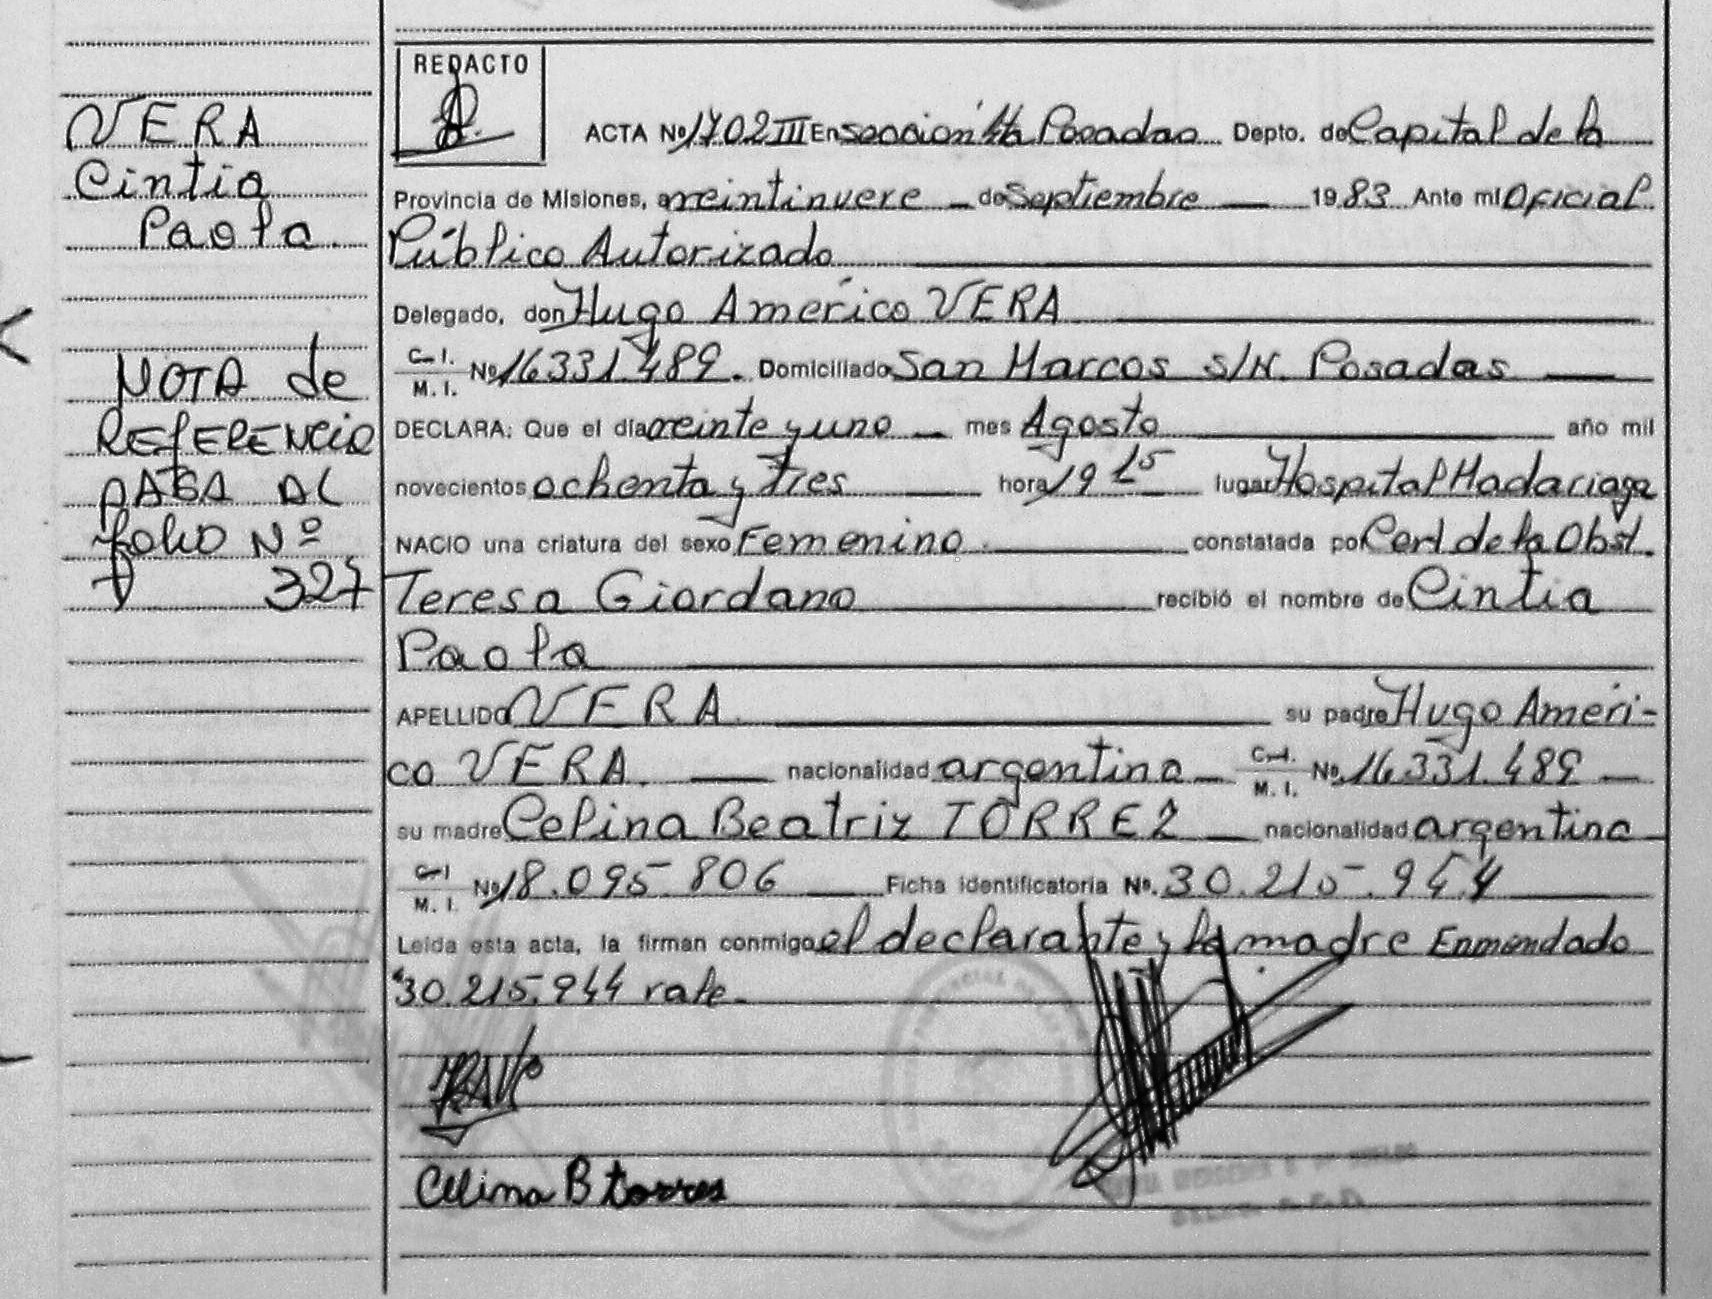 VERA
Cintia
Paola
NOTA de
REFERENCIA
PASA AL
folio Nº
327
REDACTO
ACTA Nº 1702 III En seccion 4ta Posadas Depto. de Capital de la
Provincia de Misiones, a veintinueve de Septiembre 1983 Ante mi Oficial
Público Autorizado
Delegado, don Hugo Américo VERA
C. I.
M. I. Nº 16331.489. Domiciliado San Marcos s/N. Posadas
DECLARA: Que el día veinte y uno mes Agosto año mil
novecientos ochenta y tres hora 19 15 lugar Hospital Madariaga
NACIO una criatura del sexo Femenino. constatada por Cert de la Obst.
Teresa Giordano recibió el nombre de Cintia
Paola
APELLIDO VERA su padre Hugo Améri-
co VERA. nacionalidad argentina C. I.
M. I. Nº 16.331.489
su madre Celina Beatriz TORREZ nacionalidad argentina
C. I.
M. I. Nº 18.095.806 Ficha identificatoria Nº. 30.215.944
Leída esta acta, la firman conmigo el declarante y la madre Enmendado
"30.215.944 vale.
Celina B torres